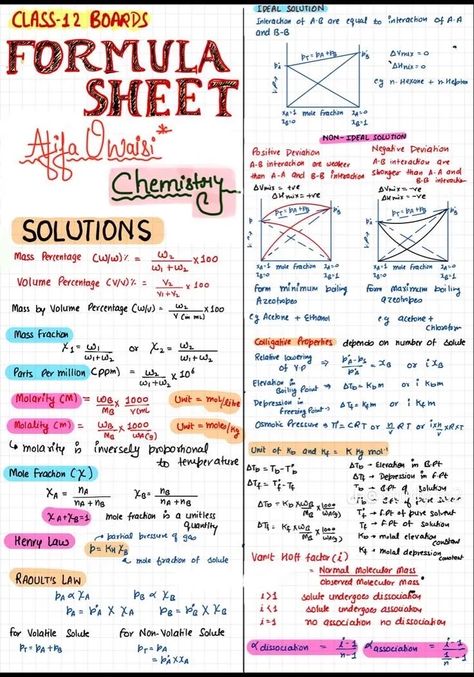 CLASS-12 BOARDS
FORMULA
SHEET
Atifa Owaisi
Chemistry
SOLUTIONS
Mass Percentage (W/w)% = ω₂/(ω₁+ω₂) ×100
Volume Percentage (V/V)% = V₂/(V₁+V₂) ×100
Mass by Volume Percentage (w/v) = ω₂/(V (in mL)) ×100
Mass Fraction
χ₁ = ω₁/(ω₁+ω₂) or χ₂ = ω₂/(ω₁+ω₂)
Parts Per million (ppm) = ω₂/(ω₁+ω₂) ×10⁶
Molarity (M) = ω_B/M_B × 1000/V(mL) Unit = mol/litre
Molality (m) = ω_B/M_B × 1000/W_A(g) Unit = moles/kg
↳ molarity is inversely proportional
to temperature
Mole Fraction (χ)
χ_A = n_A/(n_A+n_B) χ_B = n_B/(n_A+n_B)
χ_A+χ_B=1 mole fraction is a unitless
quantity
Henry Law
partial pressure of gas
p = K_H χ_B
mole fraction of solute
RAOULT'S LAW
p_A ∝ χ_A p_B ∝ χ_B
p_A = p°_A χ_A p_B = p°_B × χ_B
for Volatile Solute for Non-Volatile Solute
P_T = p_A + p_B p_T = p_A
= p°_A × χ_A
IDEAL SOLUTION
Interaction of A-B are equal to interaction of A-A
and B-B
p_T = p_A + p_B
p°_B
ΔVmix = 0
ΔHmix = 0
eg n-Hexane + n-Heptane
χ_A=1 mole fraction χ_A=0
χ_B=0 χ_B=1
NON-IDEAL SOLUTION
Positive Deviation Negative Deviation
A-B interaction are weaker A-B interaction are
than A-A and B-B interaction stronger than A-A and
B-B interaction
ΔVmix = +ve ΔVmix = -ve
ΔHmix = +ve ΔHmix = -ve
p_T = p_A + p_B p°_B p_T = p_A + p_B p°_B
χ_A=1 mole fraction χ_A=0 χ_A=1 mole fraction χ_A=0
χ_B=0 χ_B=1 χ_B=0 χ_B=1
form minimum boiling form maximum boiling
Azeotropes azeotropes
eg Acetone + Ethanol eg acetone +
chloroform
Colligative Properties depends on number of solute
Relative lowering of V.P ⇒ (p°_A - p_A)/p°_A = χ_B or iχ_B
Elevation in Boiling Point ⇒ ΔT_b = K_b m or i K_b m
Depression in freezing Point ⇒ ΔT_f = K_f m or i K_f m
Osmotic Pressure ⇒ π = CRT or n/V RT or i×n/V ×R×T
Unit of K_b and K_f = K kg mol⁻¹
ΔT_b = T_b - T°_b ΔT_b → Elevation in B.Pt
ΔT_f = T°_f - T_f ΔT_f → Depression in F.Pt
T_b → B.Pt of solution
ΔT_b = K_b × ω_B/M_B × 1000/W_A(g) T°_b → B.Pt of pure solvent
T°_f → F.Pt of pure solvent
ΔT_f = K_f × ω_B/M_B × 1000/W_A(g) T_f → F.Pt of solution
K_b → molal elevation constant
K_f → molal depression constant
Vanit Hoff factor (i)
= Normal molecular mass
observed molecular mass
i>1 solute undergoes dissociation
i<1 solute undergoes association
i=1 no association no dissociation
α dissociation = (i-1)/(n-1) α association = (i-1)/(1/n -1)